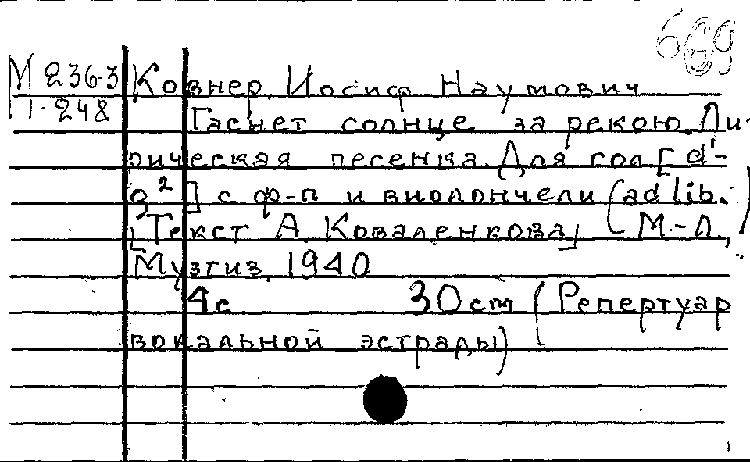 669
М 236-3 Ковнер, Иосиф Наумович
1-248 Гаснет солнце за рекою. Ли-
рическая песенка. Для гол [d¹-
g²] с ф-п и виолончели (ad lib.)
[Текст А. Коваленкова] М.-Л.,
Музгиз, 1940
4с 30 cm (Репертуар
вокальной эстрады)